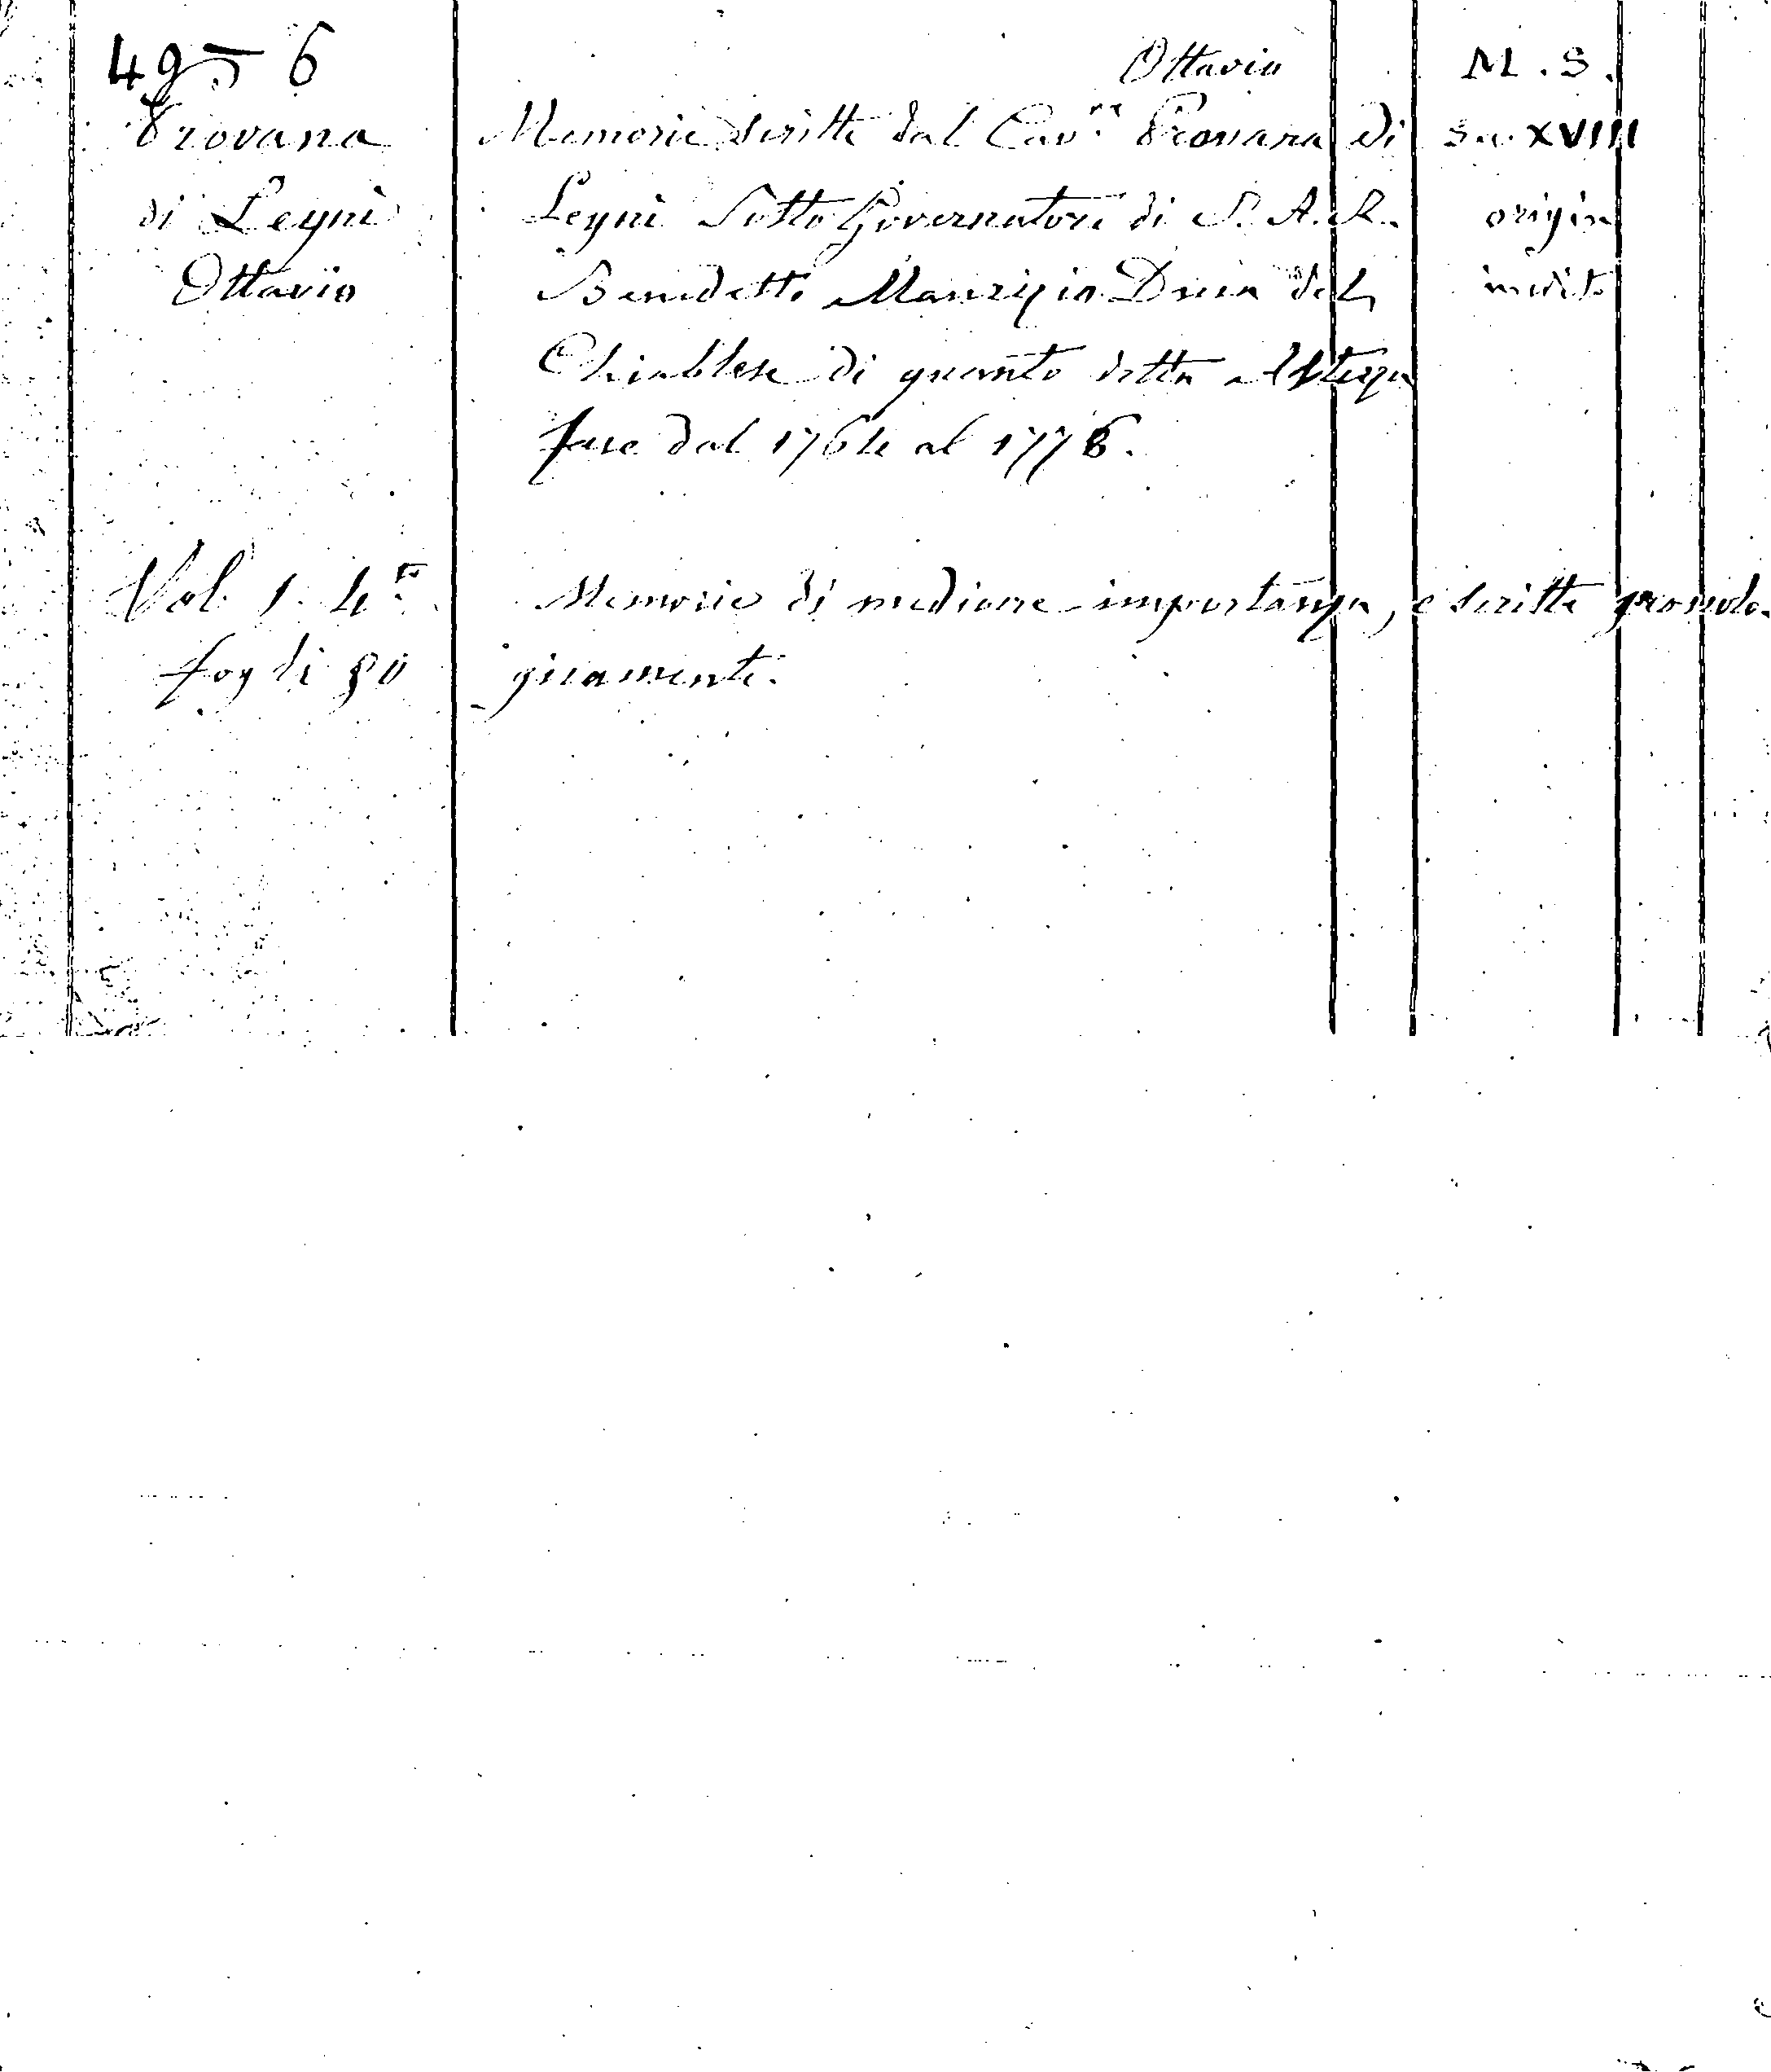 49 - 6
Provana
di Leynì
Ottavio
Ottavio
Memorie scritte dal Cav.re Provana di
Leynì Sotto Governatore di S. A. R.
Benedetto Maurizio Duca del
Chiablese di quanto detta Altezza
fece dal 1764 al 1778.
M. S.
Sec. XVIII
origin
inedito
Vol. 1. 4.to
fogli 80
Memorie di mediocre importanza, e scritte cronolo-
gicamente.